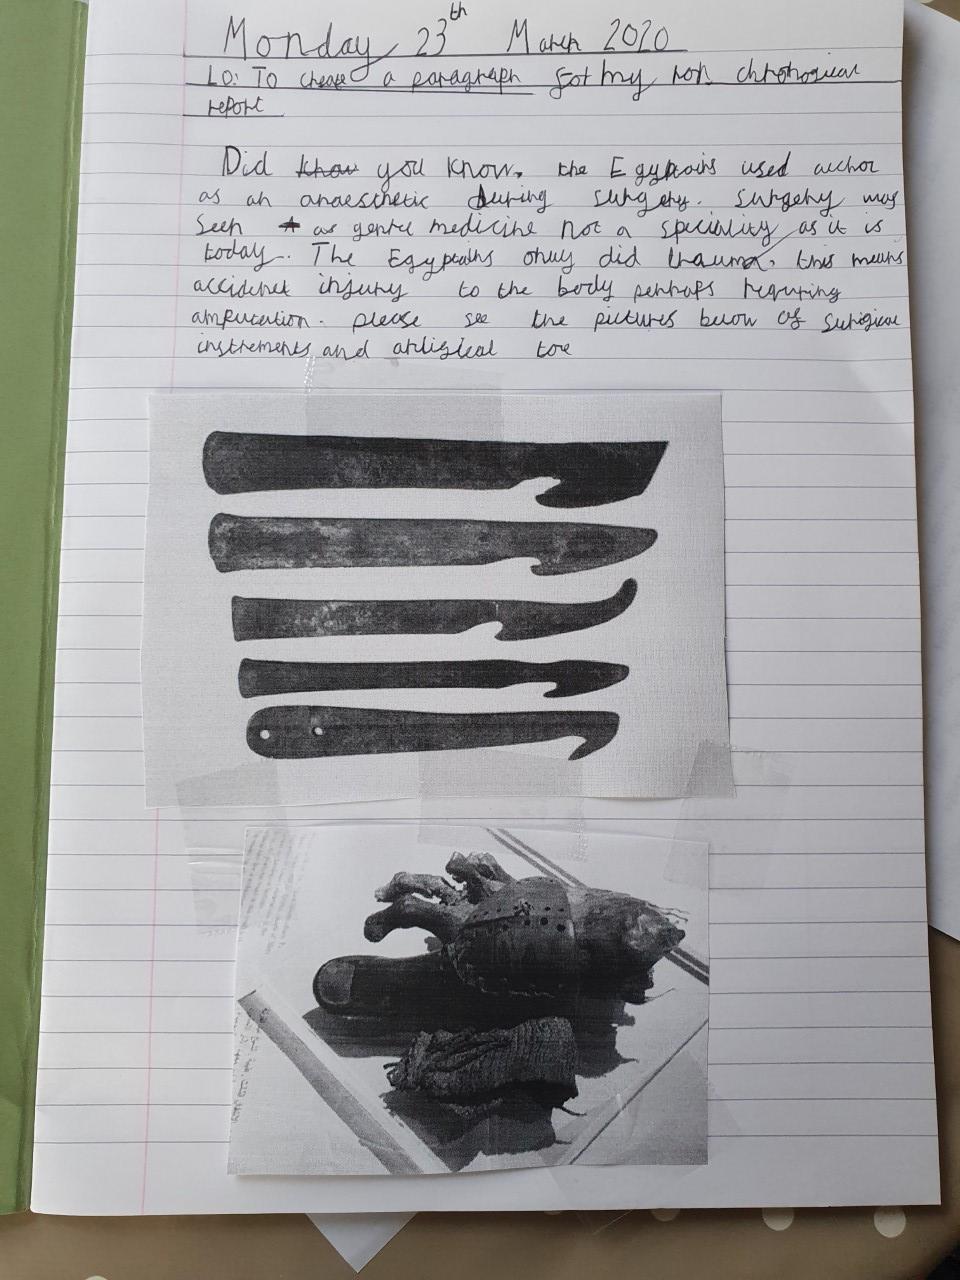 Monday 23th March 2020
LO: To create a paragraph for my non chronological
report
Did know you know, the Egyptains used
as an anaesthetic during surgery. surgery was
seen as medicine not a speciality as it is
today. The Egyptains only did trauma, this means
injury to the body perhaps requring
amputation. please see the pictures below of
instrements and toe